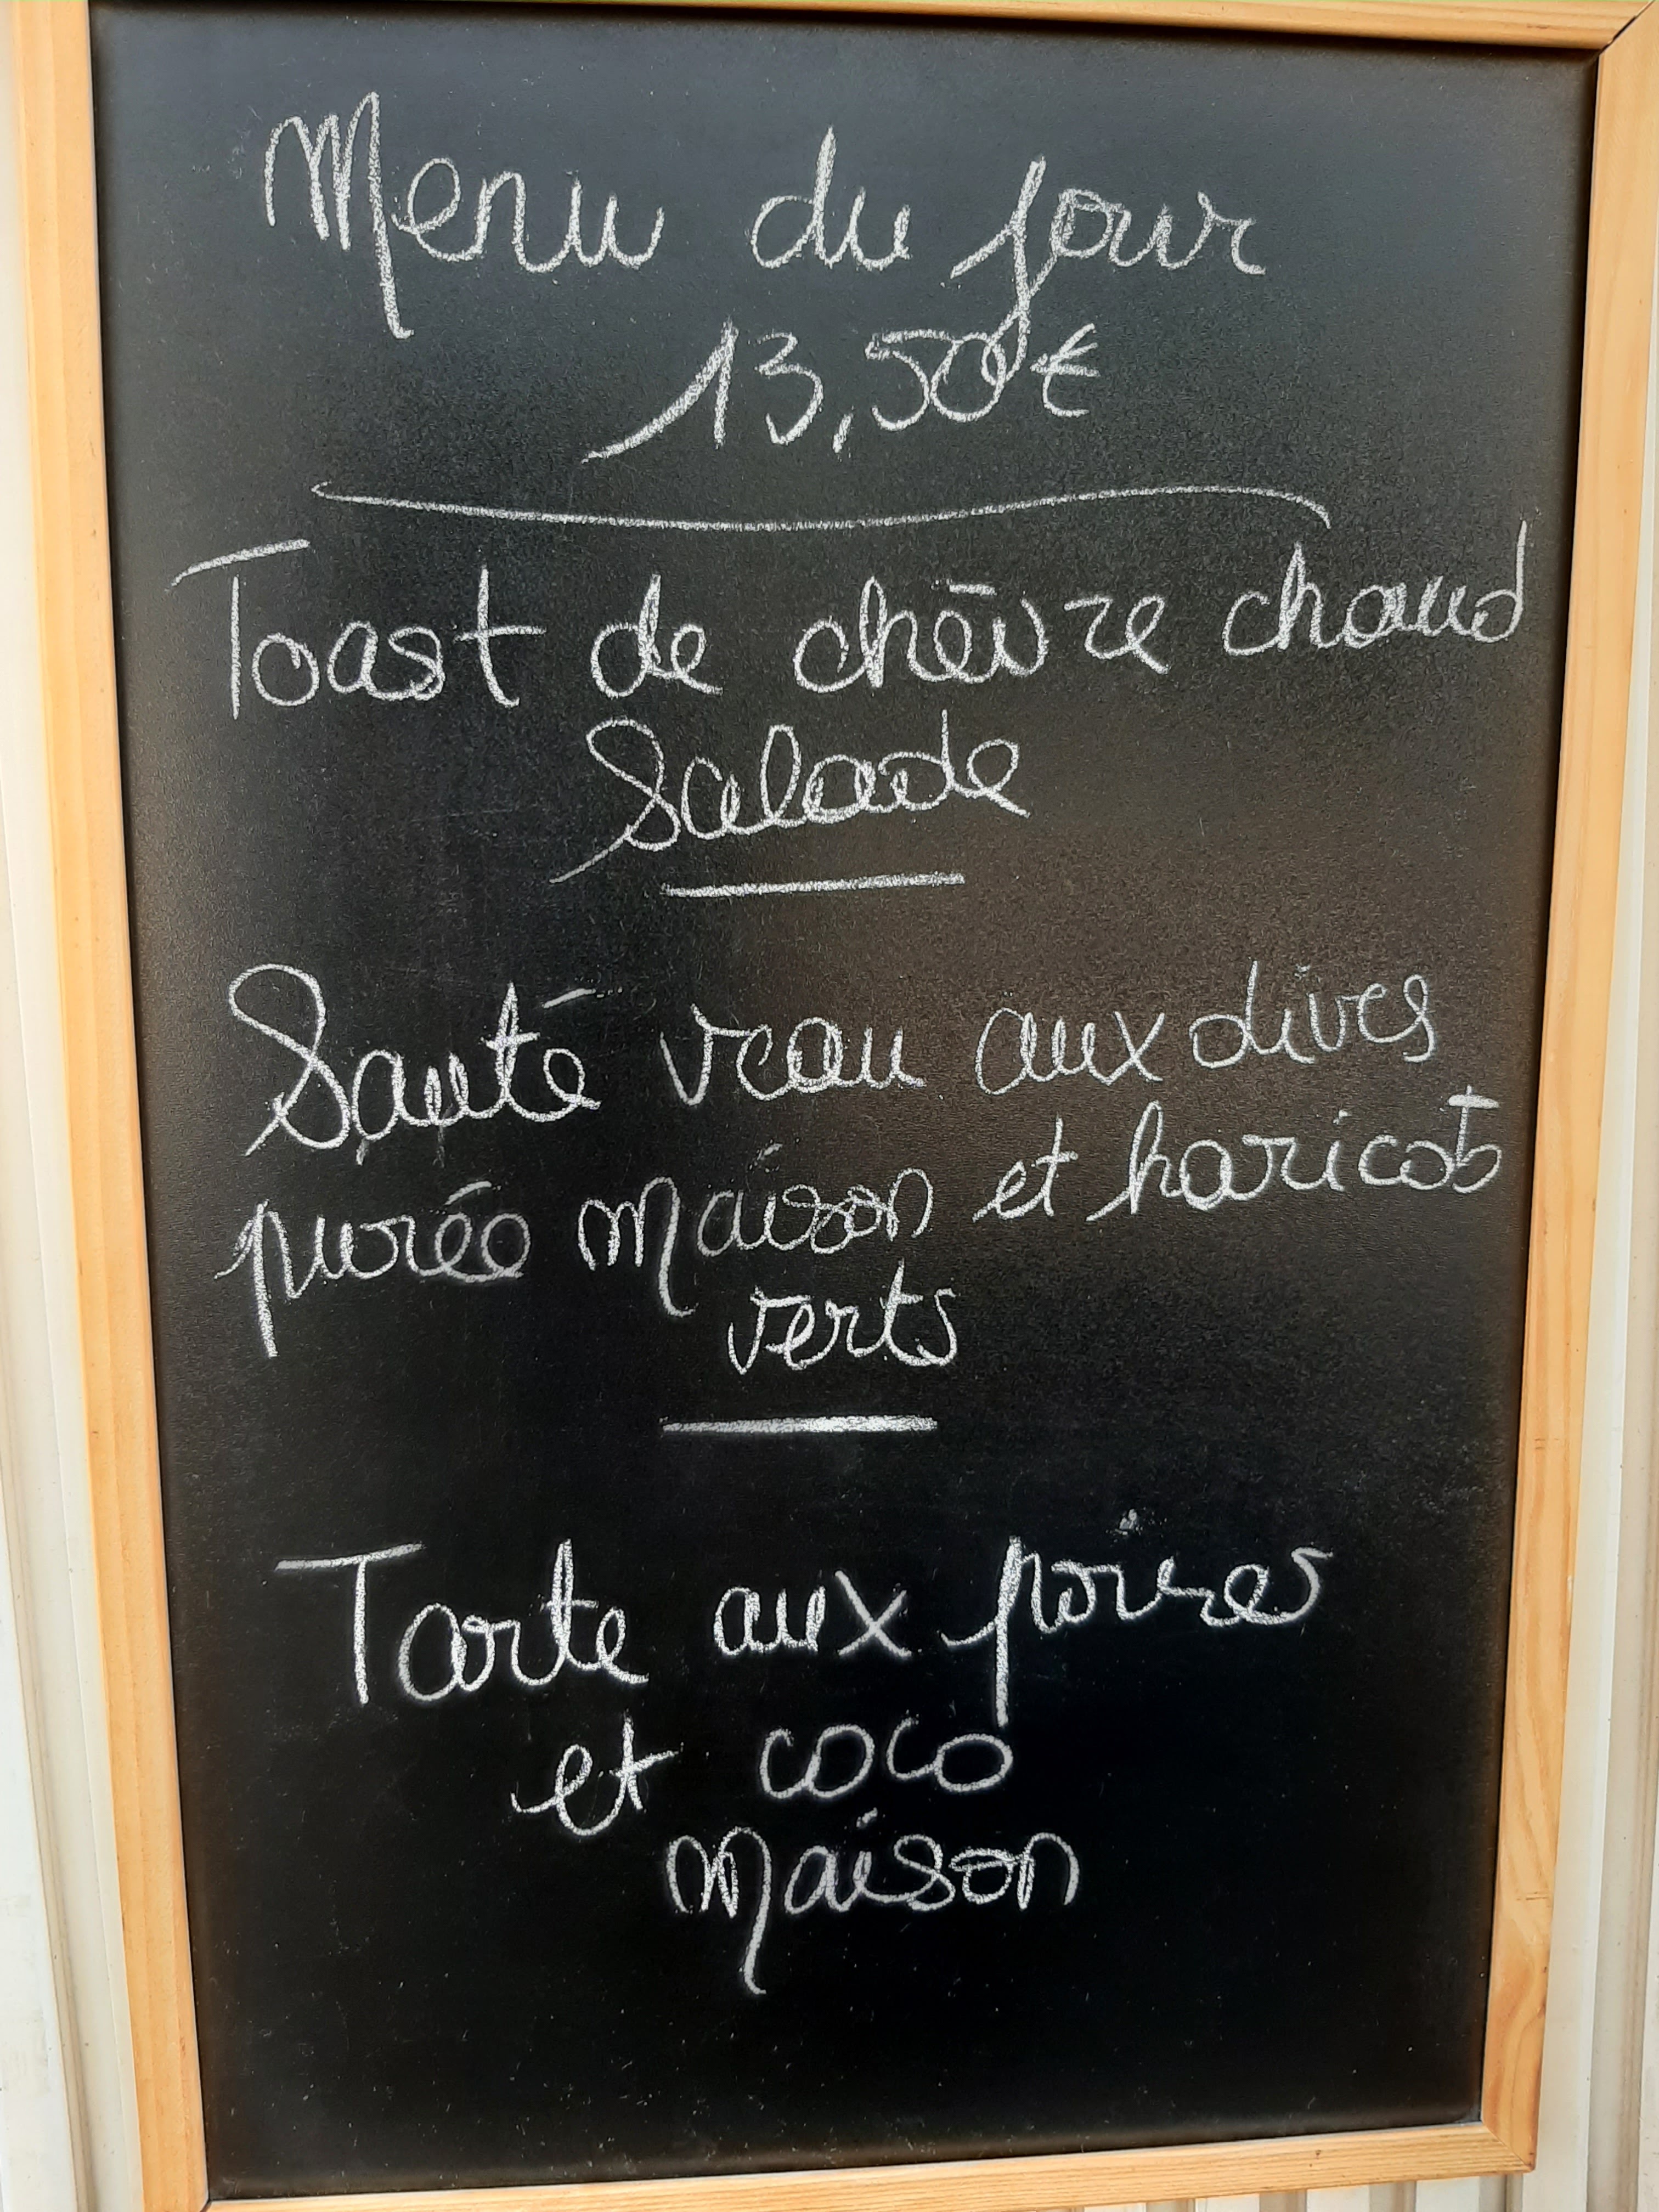 Menu du jour
13,50€
Toast de chèvre chaud
Salade
Sauté veau aux olives
purée maison et haricots
verts
Tarte aux poires
et coco
maison